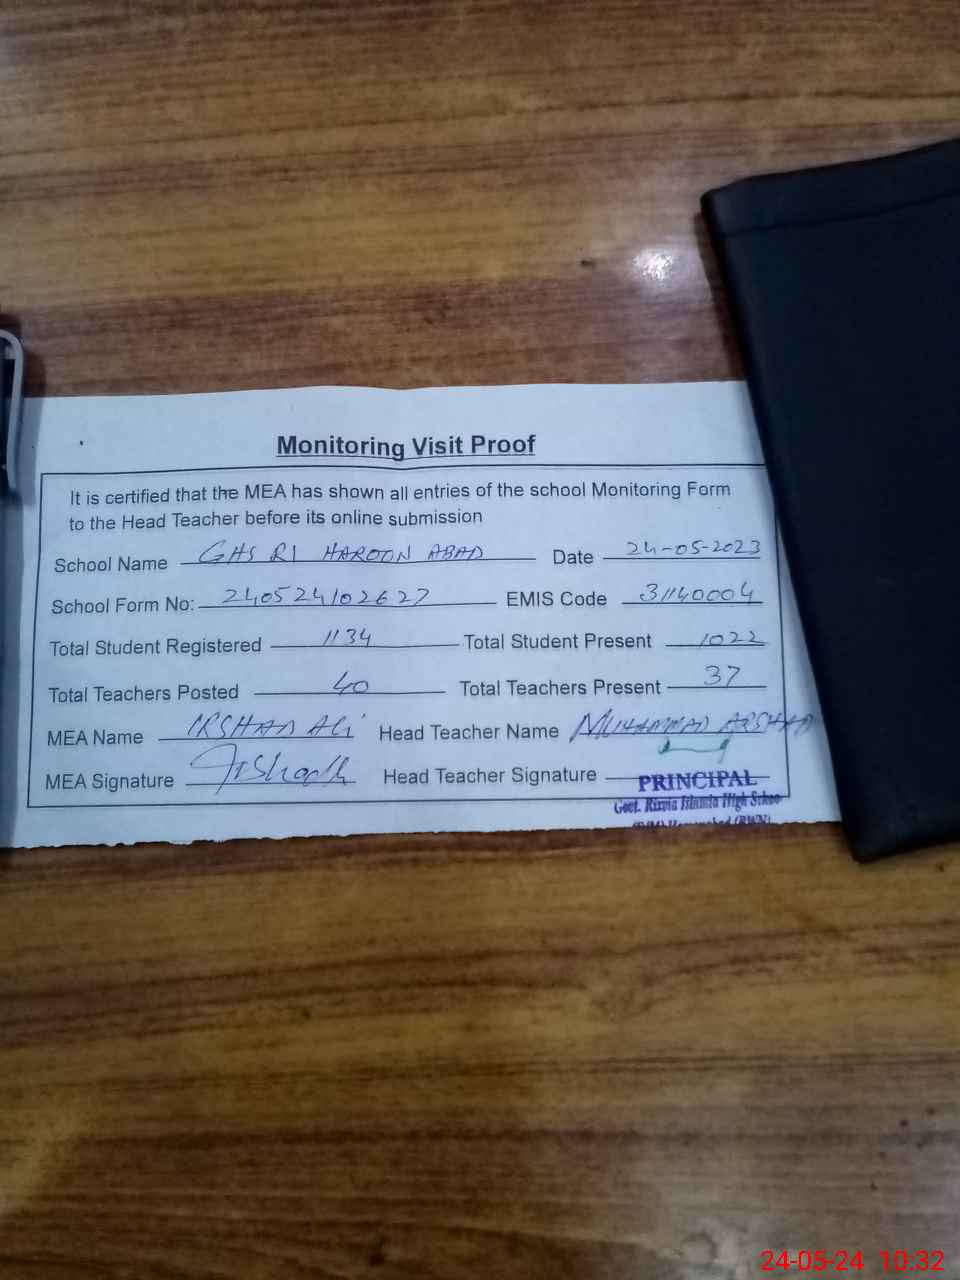 Monitoring Visit Proof
It is certified that the MEA has shown all entries of the school Monitoring Form
to the Head Teacher before its online submission
School Name GHS RI HAROON ABAD Date 24-05-2023
School Form No: 240524102627 EMIS Code 31140004
Total Student Registered 1134 Total Student Present 1022
Total Teachers Posted 40 Total Teachers Present 37
MEA Name IRSHAD Ali Head Teacher Name MUHAMMAD ARSHAD
MEA Signature Irshadh Head Teacher Signature
PRINCIPAL
Govt. Rizvia Islamia High School
24-05-24 10:32